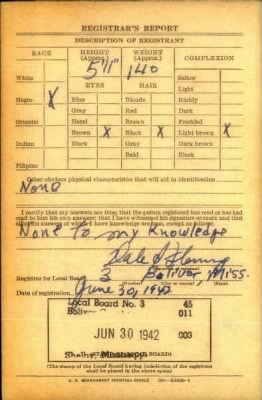 REGISTRAR'S REPORT
DESCRIPTION OF REGISTRANT
RACE HEIGHT (Approx.) WEIGHT (Approx.) COMPLEXION
5'11" 140
White Sallow
EYES HAIR Light
Negro X Blue Blonde Ruddy
Gray Red Dark
Oriental Hazel Brown Freckled
Brown X Black X Light brown X
Indian Black Gray Dark brown
Bald Black
Filipino
Other obvious physical characteristics that will aid in identification
None
I certify that my answers are true; that the person registered has read or has had
read to him his own answers; that I have witnessed his signature or mark and that
all of his answers of which I have knowledge are true, except as follows:
None to my Knowledge
Registrar for Local Board 3 Bolivar, Miss.
(Number) (City or county) (State)
Date of registration June 30, 1942
Local Board No. 3 45
011
JUN 30 1942 003
(STAMP OF LOCAL BOARD)
(The stamp of the Local Board having jurisdiction of the registrant
shall be placed in the above space)
U. S. GOVERNMENT PRINTING OFFICE